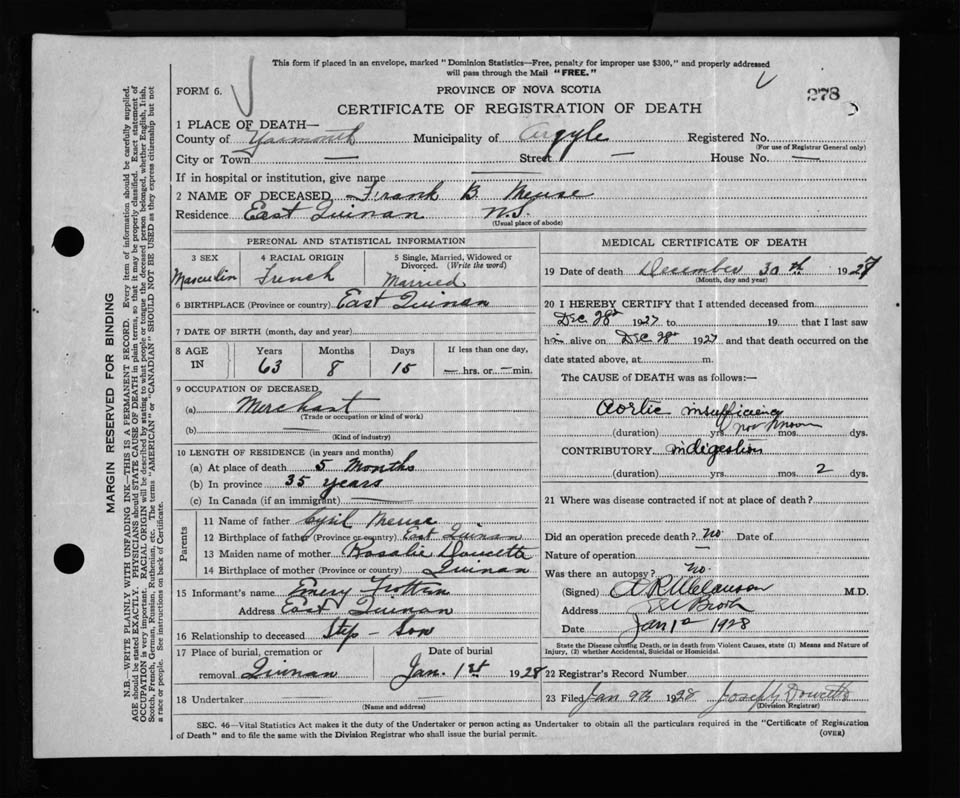 This form if placed in an envelope, marked "Dominion Statistics—Free, penalty for improper use $300," and properly addressed
will pass through the Mail "FREE."
FORM 6.
PROVINCE OF NOVA SCOTIA
278
CERTIFICATE OF REGISTRATION OF DEATH
1 PLACE OF DEATH—
County of Yarmouth Municipality of Argyle Registered No.
(For use of Registrar General only)
City or Town — Street — House No. —
If in hospital or institution, give name —
2 NAME OF DECEASED Frank B. Meuse
Residence East Quinan N.S.
(Usual place of abode)
PERSONAL AND STATISTICAL INFORMATION
3 SEX 4 RACIAL ORIGIN 5 Single, Married, Widowed or
Divorced. (Write the word)
Masculin French Married
6 BIRTHPLACE (Province or country) East Quinan
7 DATE OF BIRTH (month, day and year)
8 AGE IN Years Months Days If less than one day,
63 8 15 — hrs. or — min.
9 OCCUPATION OF DECEASED
(a) Merchant
(Trade or occupation or kind of work)
(b) —
(Kind of industry)
10 LENGTH OF RESIDENCE (in years and months)
(a) At place of death 5 Months
(b) In province 35 years
(c) In Canada (if an immigrant) —
Parents
11 Name of father Cyril Meuse
12 Birthplace of father (Province or country) East Quinan
13 Maiden name of mother Rosalie Doucette
14 Birthplace of mother (Province or country) Quinan
15 Informant's name Emery Frotten
Address East Quinan
16 Relationship to deceased Step-Son
17 Place of burial, cremation or Date of burial
removal Quinan Jan. 1st 1928
18 Undertaker
(Name and address)
MEDICAL CERTIFICATE OF DEATH
19 Date of death December 30th 1927
(Month, day and year)
20 I HEREBY CERTIFY that I attended deceased from
Dec 28th 1927 to 19 that I last saw
him alive on Dec 28th 1927 and that death occurred on the
date stated above, at m.
The CAUSE of DEATH was as follows:—
Aortic insufficiency
(duration) yrs. not known mos. dys.
CONTRIBUTORY indigestion
(duration) yrs. mos. 2 dys.
21 Where was disease contracted if not at place of death?
Did an operation precede death? no Date of
Nature of operation —
Was there an autopsy? no.
(Signed) M.D.
Address
Date Jan 1st 1928
State the Disease causing Death, or in death from Violent Causes, state (1) Means and Nature of
Injury, (2) whether Accidental, Suicidal or Homicidal.
22 Registrar's Record Number
23 Filed Jan 9th 1928 Joseph Doucette
(Division Registrar)
SEC. 46—Vital Statistics Act makes it the duty of the Undertaker or person acting as Undertaker to obtain all the particulars required in the "Certificate of Registration
of Death" and to file the same with the Division Registrar who shall issue the burial permit.
(OVER)
MARGIN RESERVED FOR BINDING
N.B.—WRITE PLAINLY WITH UNFADING INK—THIS IS A PERMANENT RECORD. Every item of information should be carefully supplied.
AGE should be stated EXACTLY. PHYSICIANS should STATE CAUSE OF DEATH in plain terms, so that it may be properly classified. Exact statement of
OCCUPATION is very important. RACIAL ORIGIN will be described by stating to what people or tongue the deceased person belonged, whether English, Irish,
Scotch, French, German, Russian, Ruthenian, etc. The terms "AMERICAN" or "CANADIAN" SHOULD NOT BE USED as they express citizenship but not
a race or people. See instructions on back of Certificate.